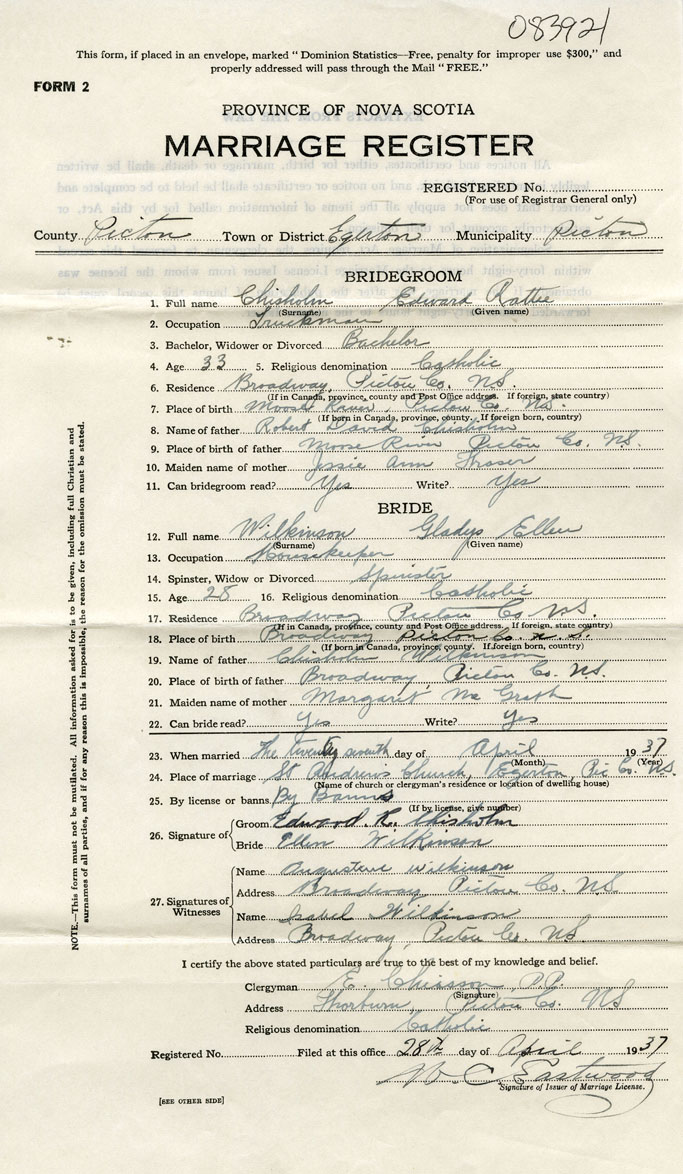 083921
This form, if placed in an envelope, marked "Dominion Statistics—Free, penalty for improper use $300," and
properly addressed will pass through the Mail "FREE."
FORM 2
PROVINCE OF NOVA SCOTIA
MARRIAGE REGISTER
REGISTERED No.
(For use of Registrar General only)
County Pictou Town or District Egerton Municipality Pictou
BRIDEGROOM
1. Full name Chisholm Edward Rattie
(Surname) (Given name)
2. Occupation Truckman
3. Bachelor, Widower or Divorced Bachelor
4. Age 33 5. Religious denomination Catholic
6. Residence Broadway, Pictou Co. N.S.
(If in Canada, province, county and Post Office address. If foreign, state country)
7. Place of birth Moose River, Pictou Co. N.S.
(If born in Canada, province, county. If foreign born, country)
8. Name of father Robert David Chisholm
9. Place of birth of father Moose River Pictou Co. N.S.
10. Maiden name of mother Jessie Ann Fraser
11. Can bridegroom read? Yes Write? Yes
BRIDE
12. Full name Wilkinson Gladys Ellen
(Surname) (Given name)
13. Occupation Housekeeper
14. Spinster, Widow or Divorced Spinster
15. Age 28 16. Religious denomination Catholic
17. Residence Broadway Pictou Co. N.S.
(If in Canada, province, county and Post Office address. If foreign, state country)
18. Place of birth Broadway Pictou Co. N.S.
(If born in Canada, province, county. If foreign born, country)
19. Name of father Chisholm Wilkinson
20. Place of birth of father Broadway, Pictou Co. N.S.
21. Maiden name of mother Margaret McGrath
22. Can bride read? Yes Write? Yes
23. When married The twenty seventh day of April 1937
(Month) (Year)
24. Place of marriage St Andrew's Church, Egerton, Pic Co. N.S.
(Name of church or clergyman's residence or location of dwelling house)
25. By license or banns By Banns
(If by license, give number)
26. Signature of Groom Edward R. Chisholm
Bride Ellen Wilkinson
27. Signatures of Witnesses
Name Augustine Wilkinson
Address Broadway Pictou Co. N.S.
Name Isabel Wilkinson
Address Broadway, Pictou Co. N.S.
I certify the above stated particulars are true to the best of my knowledge and belief.
Clergyman E. Chiasson, P.P.
(Signature)
Address Thorburn, Pictou Co. N.S
Religious denomination Catholic
Registered No. Filed at this office 28th day of April 1937
W. C. Eastwood
Signature of Issuer of Marriage License.
[SEE OTHER SIDE]
NOTE.—This form must not be mutilated. All information asked for is to be given, including full Christian and
surnames of all parties, and if for any reason this is impossible, the reason for the omission must be stated.